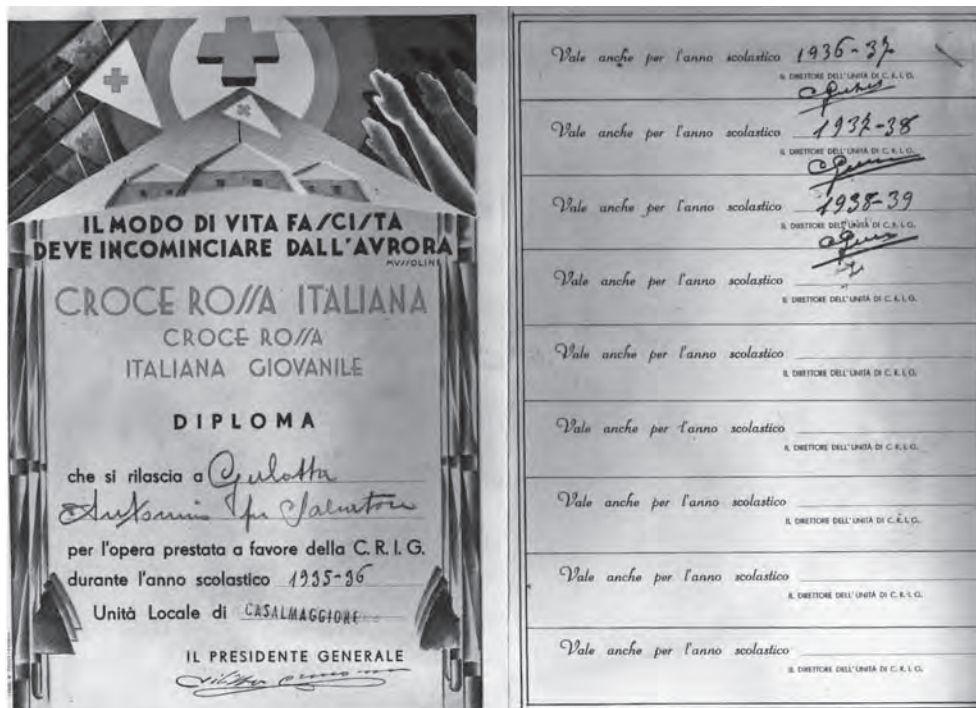 IL MODO DI VITA FASCISTA
DEVE INCOMINCIARE DALL'AVRORA
MVSSOLINI
CROCE ROSSA ITALIANA
CROCE ROSSA
ITALIANA GIOVANILE
DIPLOMA
che si rilascia a Gulotta
Antonino fu Salvatore
per l'opera prestata a favore della C.R.I.G.
durante l'anno scolastico 1935-36
Unità Locale di CASALMAGGIORE
IL PRESIDENTE GENERALE
Vale anche per l'anno scolastico 1936-37
IL DIRETTORE DELL'UNITÀ DI C.R.I.G.
Vale anche per l'anno scolastico 1937-38
IL DIRETTORE DELL'UNITÀ DI C.R.I.G.
Vale anche per l'anno scolastico 1938-39
IL DIRETTORE DELL'UNITÀ DI C.R.I.G.
Vale anche per l'anno scolastico
IL DIRETTORE DELL'UNITÀ DI C.R.I.G.
Vale anche per l'anno scolastico
IL DIRETTORE DELL'UNITÀ DI C.R.I.G.
Vale anche per l'anno scolastico
IL DIRETTORE DELL'UNITÀ DI C.R.I.G.
Vale anche per l'anno scolastico
IL DIRETTORE DELL'UNITÀ DI C.R.I.G.
Vale anche per l'anno scolastico
IL DIRETTORE DELL'UNITÀ DI C.R.I.G.
Vale anche per l'anno scolastico
IL DIRETTORE DELL'UNITÀ DI C.R.I.G.